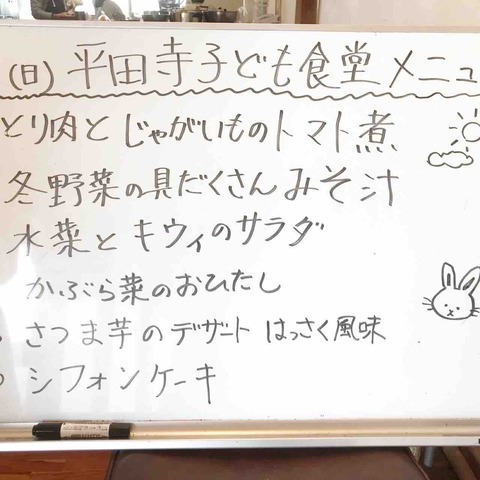 (日) 平田寺子ども食堂メニュ
とり肉とじゃがいものトマト煮
冬野菜の具だくさんみそ汁
水菜とキウィのサラダ
かぶら菜のおひたし
さつま芋のデザート はっさく風味
シフォンケーキ